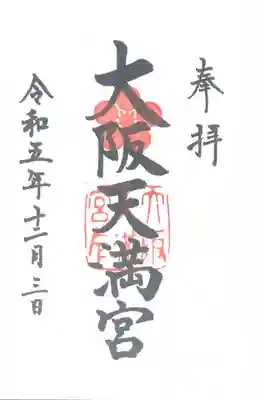 奉拝
大阪天満宮
令和五年十二月三日